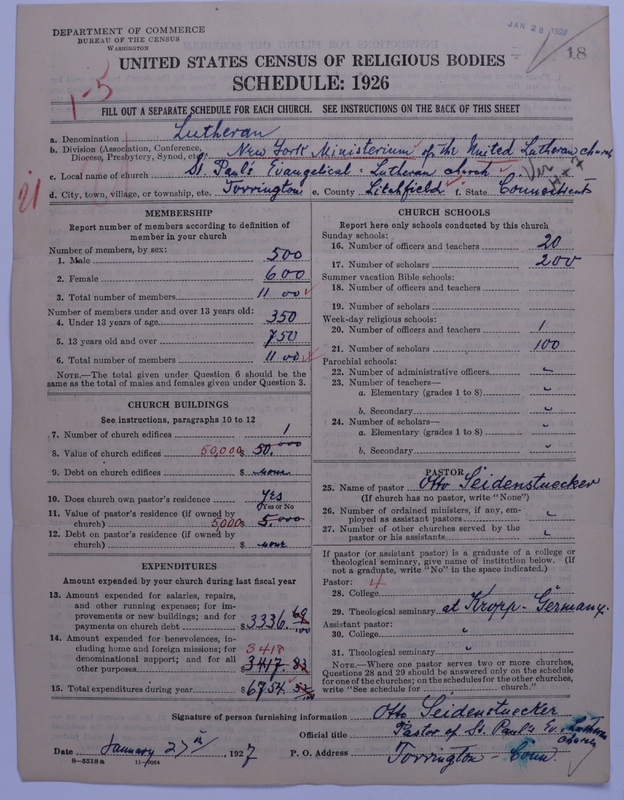 DEPARTMENT OF COMMERCE
BUREAU OF THE CENSUS
WASHINGTON
JAN 28 1927
18
UNITED STATES CENSUS OF RELIGIOUS BODIES
SCHEDULE: 1926
1-5
FILL OUT A SEPARATE SCHEDULE FOR EACH CHURCH. SEE INSTRUCTIONS ON THE BACK OF THIS SHEET
a. Denomination Lutheran
b. Division (Association, Conference, Diocese, Presbytery, Synod, etc.) New York Ministerium of the United Lutheran church
c. Local name of church St. Paul's Evangelical - Lutheran church
d. City, town, village, or township, etc. Torrington e. County Litchfield f. State Connecticut
21
MEMBERSHIP
Report number of members according to definition of member in your church
Number of members, by sex:
1. Male 500
2. Female 600
3. Total number of members 1100
Number of members under and over 13 years old:
4. Under 13 years of age 350
5. 13 years old and over 750
6. Total number of members 1100
NOTE.—The total given under Question 6 should be the same as the total of males and females given under Question 3.
CHURCH BUILDINGS
See instructions, paragraphs 10 to 12
7. Number of church edifices 1
8. Value of church edifices 50,000 $ 50.000
9. Debt on church edifices $ none
10. Does church own pastor's residence Yes
Yes or No
11. Value of pastor's residence (if owned by church) 5000 $ 5.000
12. Debt on pastor's residence (if owned by church) $ none
EXPENDITURES
Amount expended by your church during last fiscal year
13. Amount expended for salaries, repairs, and other running expenses; for improvements or new buildings; and for payments on church debt $ 3336. 69/100
14. Amount expended for benevolences, including home and foreign missions; for denominational support; and for all other purposes 3418 3417. 82
15. Total expenditures during year $ 6754.
CHURCH SCHOOLS
Report here only schools conducted by this church
Sunday schools:
16. Number of officers and teachers 20
17. Number of scholars 200
Summer vacation Bible schools:
18. Number of officers and teachers
19. Number of scholars
Week-day religious schools:
20. Number of officers and teachers 1
21. Number of scholars 100
Parochial schools:
22. Number of administrative officers
23. Number of teachers—
a. Elementary (grades 1 to 8)
b. Secondary
24. Number of scholars—
a. Elementary (grades 1 to 8)
b. Secondary
PASTOR
25. Name of pastor Otto Seidenstuecker
(If church has no pastor, write "None")
26. Number of ordained ministers, if any, employed as assistant pastors
27. Number of other churches served by the pastor or his assistants
If pastor (or assistant pastor) is a graduate of a college or theological seminary, give name of institution below. (If not a graduate, write "No" in the space indicated.)
Pastor:
28. College
29. Theological seminary at Kropp - Germany.
Assistant pastor:
30. College
31. Theological seminary
NOTE.—Where one pastor serves two or more churches, Questions 28 and 29 should be answered only on the schedule for one of the churches; on the schedules for the other churches, write "See schedule for ........ church."
Signature of person furnishing information Otto Seidenstuecker
Official title Pastor of St. Paul's Ev. Lutheran church
Date January 27th, 1927 P. O. Address Torrington - Conn.
8-5518a